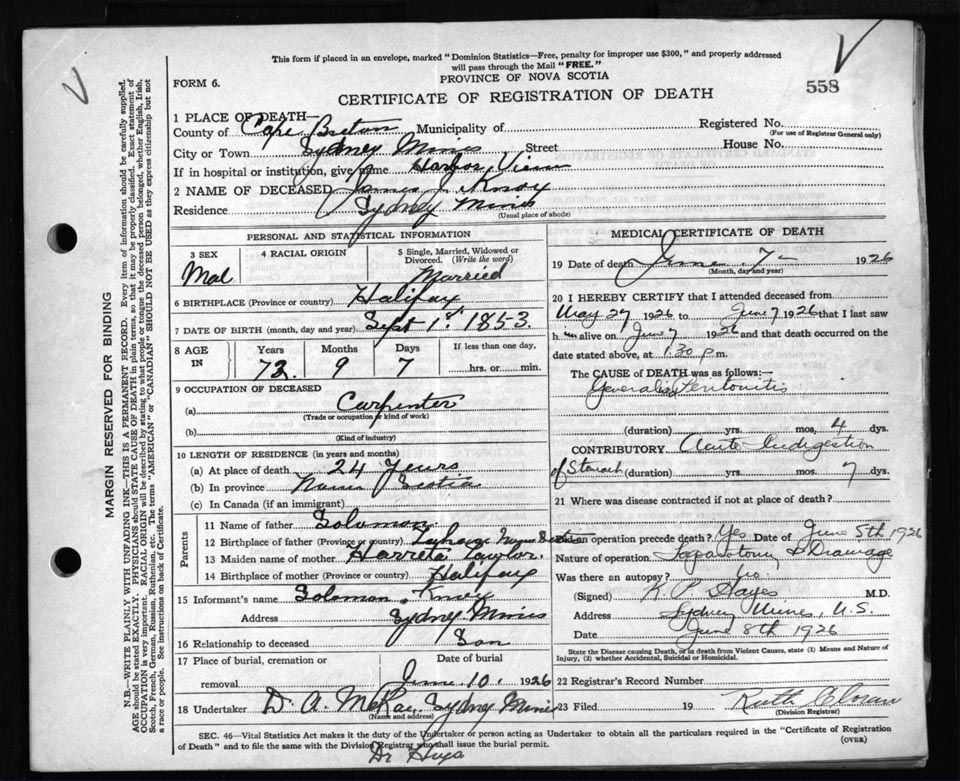 This form if placed in an envelope, marked "Dominion Statistics—Free, penalty for improper use $300," and properly addressed
will pass through the Mail "FREE."
PROVINCE OF NOVA SCOTIA
FORM 6.
558
CERTIFICATE OF REGISTRATION OF DEATH
1 PLACE OF DEATH—
County of Cape Breton Municipality of
Registered No.
(For use of Registrar General only)
City or Town Sydney Mines Street
House No.
If in hospital or institution, give name Harbor View
2 NAME OF DECEASED James J. Knox
Residence Sydney Mines
(Usual place of abode)
PERSONAL AND STATISTICAL INFORMATION
3 SEX
Mal
4 RACIAL ORIGIN
5 Single, Married, Widowed or
Divorced. (Write the word)
Married
6 BIRTHPLACE (Province or country) Halifax
7 DATE OF BIRTH (month, day, and year) Sept 1st 1853.
8 AGE
IN
Years
72.
Months
9
Days
7
If less than one day,
hrs. or min.
9 OCCUPATION OF DECEASED
(a) Carpenter
(Trade or occupation or kind of work)
(b)
(Kind of industry)
10 LENGTH OF RESIDENCE (in years and months)
(a) At place of death 24 Years
(b) In province Scotia
(c) In Canada (if an immigrant)
Parents
11 Name of father Solomon
12 Birthplace of father (Province or country)
13 Maiden name of mother Harreta Taylor.
14 Birthplace of mother (Province or country) Halifax
15 Informant's name Solomon Knox
Address Sydney Mines
16 Relationship to deceased Son
17 Place of burial, cremation or
removal
Date of burial
June 10. 1926
18 Undertaker D. A. McRae, Sydney Mines
(Name and address)
MEDICAL CERTIFICATE OF DEATH
19 Date of death June 7— 1926
(Month, day and year)
20 I HEREBY CERTIFY that I attended deceased from
May 27 1926 to June 7 1926 that I last saw
him alive on June 7 1926 and that death occurred on the
date stated above, at 1:30 p.m.
The CAUSE of DEATH was as follows:—
Peritonitis
(duration) yrs. mos. 4 dys.
CONTRIBUTORY Acute Indigestion
of Stomach (duration) yrs. mos. 7 dys.
21 Where was disease contracted if not at place of death?
Did an operation precede death? Yes Date of June 5th 1926
Nature of operation Laparotomy & Drainage
Was there an autopsy? No
(Signed) Hayes M.D.
Address Sydney Mines, N.S.
Date June 8th 1926
State the Disease causing Death, or in death from Violent Causes, state (1) Means and Nature of
Injury, (2) whether Accidental, Suicidal or Homicidal.
22 Registrar's Record Number
23 Filed 19 Ruth
(Division Registrar)
SEC. 46—Vital Statistics Act makes it the duty of the Undertaker or person acting as Undertaker to obtain all the particulars required in the "Certificate of Registration
of Death" and to file the same with the Division Registrar who shall issue the burial permit.
(OVER)
Dr
MARGIN RESERVED FOR BINDING
N.B.—WRITE PLAINLY WITH UNFADING INK—THIS IS A PERMANENT RECORD. Every item of information should be carefully supplied.
AGE should be stated EXACTLY. PHYSICIANS should STATE CAUSE OF DEATH in plain terms, so that it may be properly classified. Exact statement of
OCCUPATION is very important. RACIAL ORIGIN will be described by stating to what people or tongue the deceased person belonged, whether English, Irish,
Scotch, French, German, Russian, Ruthenian, etc. The terms "AMERICAN" or "CANADIAN" SHOULD NOT BE USED as they express citizenship but not
a race or people. See instructions on back of Certificate.